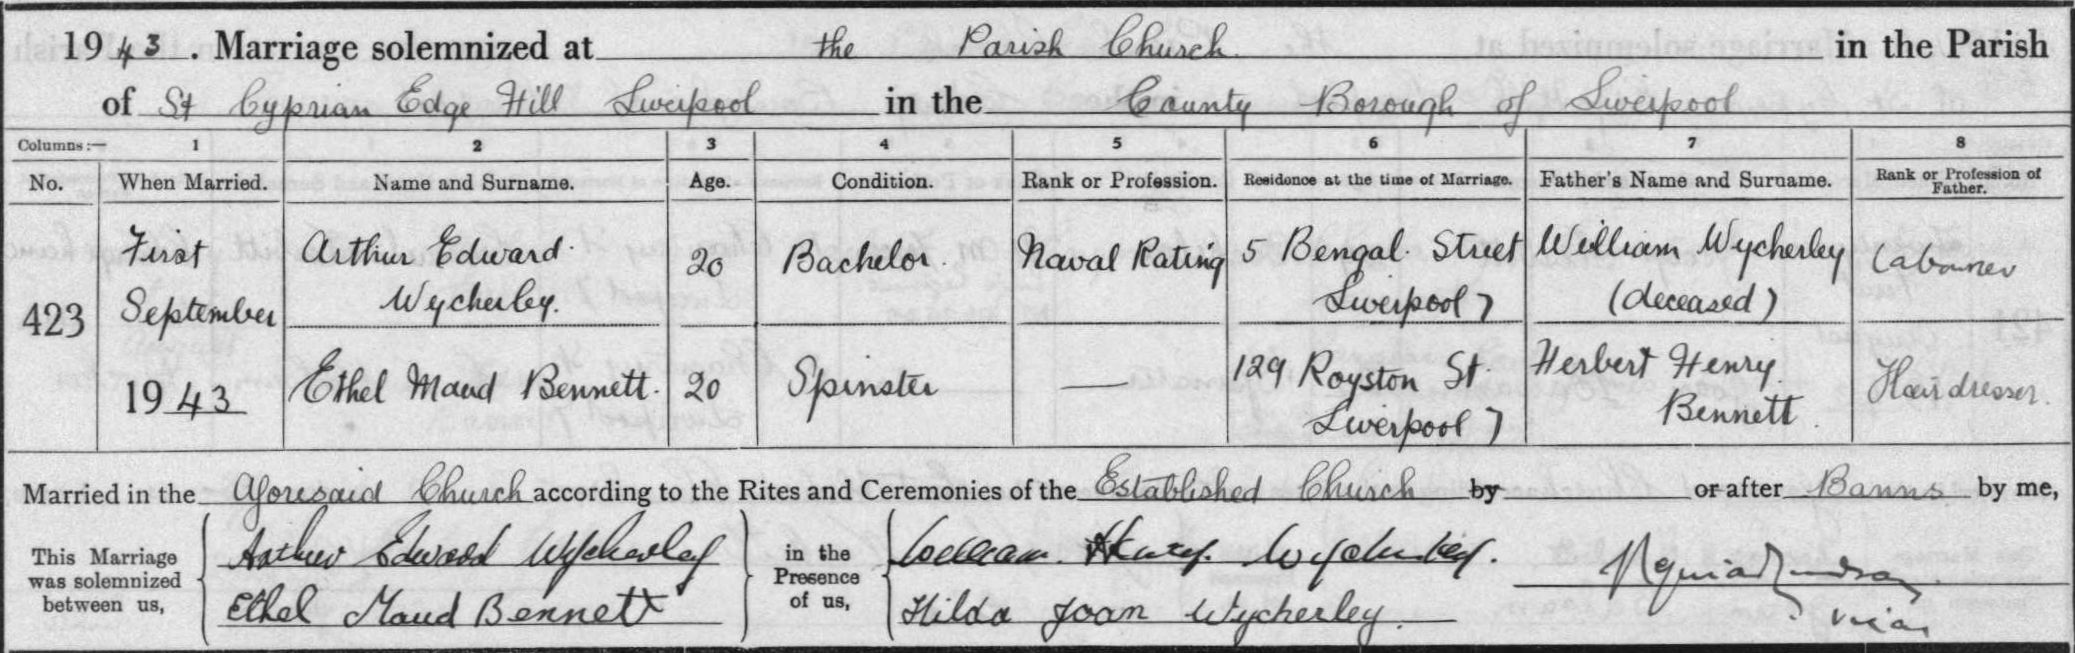 1943. Marriage solemnized at the Parish Church. in the Parish
of St Cyprian Edge Hill Liverpool in the County Borough of Liverpool
Columns:— 1 2 3 4 5 6 7 8
No. When Married. Name and Surname. Age. Condition. Rank or Profession. Residence at the time of Marriage. Father's Name and Surname. Rank or Profession of Father.
423 First September 1943
Arthur Edward Wycherley. 20 Bachelor. Naval Rating 5 Bengal Street Liverpool 7 William Wycherley (deceased) Labourer
Ethel Maud Bennett. 20 Spinster — 129 Royston St. Liverpool 7 Herbert Henry Bennett Hairdresser.
Married in the aforesaid Church according to the Rites and Ceremonies of the Established Church by or after Banns by me,
This Marriage was solemnized between us,
Arthur Edward Wycherley
Ethel Maud Bennett
in the Presence of us,
William Henry Wycherley.
Hilda Joan Wycherley.
Vicar